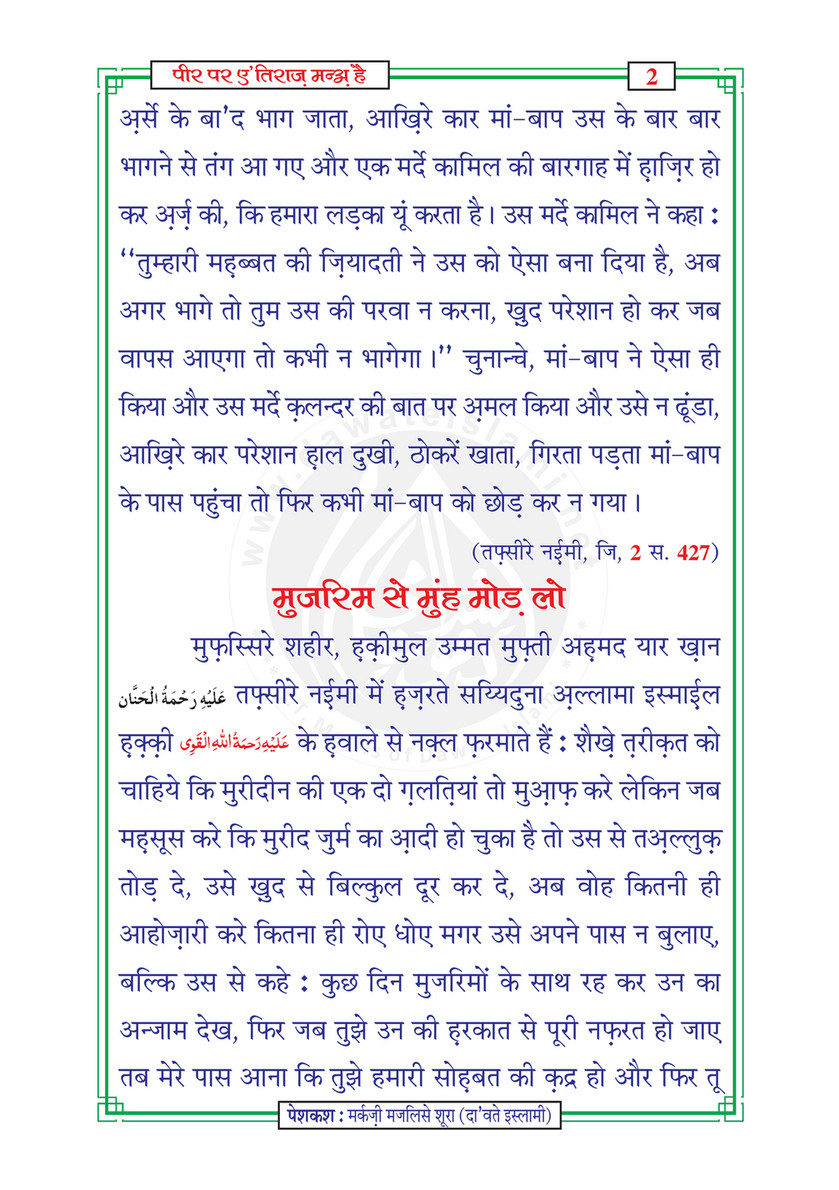 पीर पर ए'तिराज़ मन्अ़ है
2
अ़र्से के बा'द भाग जाता, आख़िरे कार मां-बाप उस के बार बार
भागने से तंग आ गए और एक मर्दे कामिल की बारगाह में ह़ाज़िर हो
कर अ़र्ज़ की, कि हमारा लड़का यूं करता है। उस मर्दे कामिल ने कहा :
‘‘तुम्हारी मह़ब्बत की ज़ियादती ने उस को ऐसा बना दिया है, अब
अगर भागे तो तुम उस की परवा न करना, ख़ुद परेशान हो कर जब
वापस आएगा तो कभी न भागेगा।’’ चुनान्चे, मां-बाप ने ऐसा ही
किया और उस मर्दे क़लन्दर की बात पर अ़मल किया और उसे न ढूंडा,
आख़िरे कार परेशान ह़ाल दुखी, ठोकरें खाता, गिरता पड़ता मां-बाप
के पास पहुंचा तो फिर कभी मां-बाप को छोड़ कर न गया।
(तफ़्सीरे नईमी, जि, 2 स. 427)
मुजरिम से मुंह मोड़ लो
मुफ़स्सिरे शहीर, ह़कीमुल उम्मत मुफ़्ती अह़मद यार ख़ान
عَلَيْهِ رَحْمَةُ الْحَنَّان तफ़्सीरे नईमी में ह़ज़रते सय्यिदुना अ़ल्लामा इस्माईल
ह़क़्क़ी عَلَيْهِ رَحْمَةُ اللهِ الْقَوِى के ह़वाले से नक़्ल फ़रमाते हैं : शैख़े त़रीक़त को
चाहिये कि मुरीदीन की एक दो ग़लति़यां तो मुआ़फ़ करे लेकिन जब
मह़सूस करे कि मुरीद जुर्म का आ़दी हो चुका है तो उस से तअ़ल्लुक़
तोड़ दे, उसे ख़ुद से बिल्कुल दूर कर दे, अब वोह कितनी ही
आहोज़ारी करे कितना ही रोए धोए मगर उसे अपने पास न बुलाए,
बल्कि उस से कहे : कुछ दिन मुजरिमों के साथ रह कर उन का
अन्जाम देख, फिर जब तुझे उन की ह़रकात से पूरी नफ़रत हो जाए
तब मेरे पास आना कि तुझे हमारी सोह़बत की क़द्र हो और फिर तू
पेशकश : मर्कज़ी मजलिसे शूरा (दा'वते इस्लामी)
www.dawateislami.net